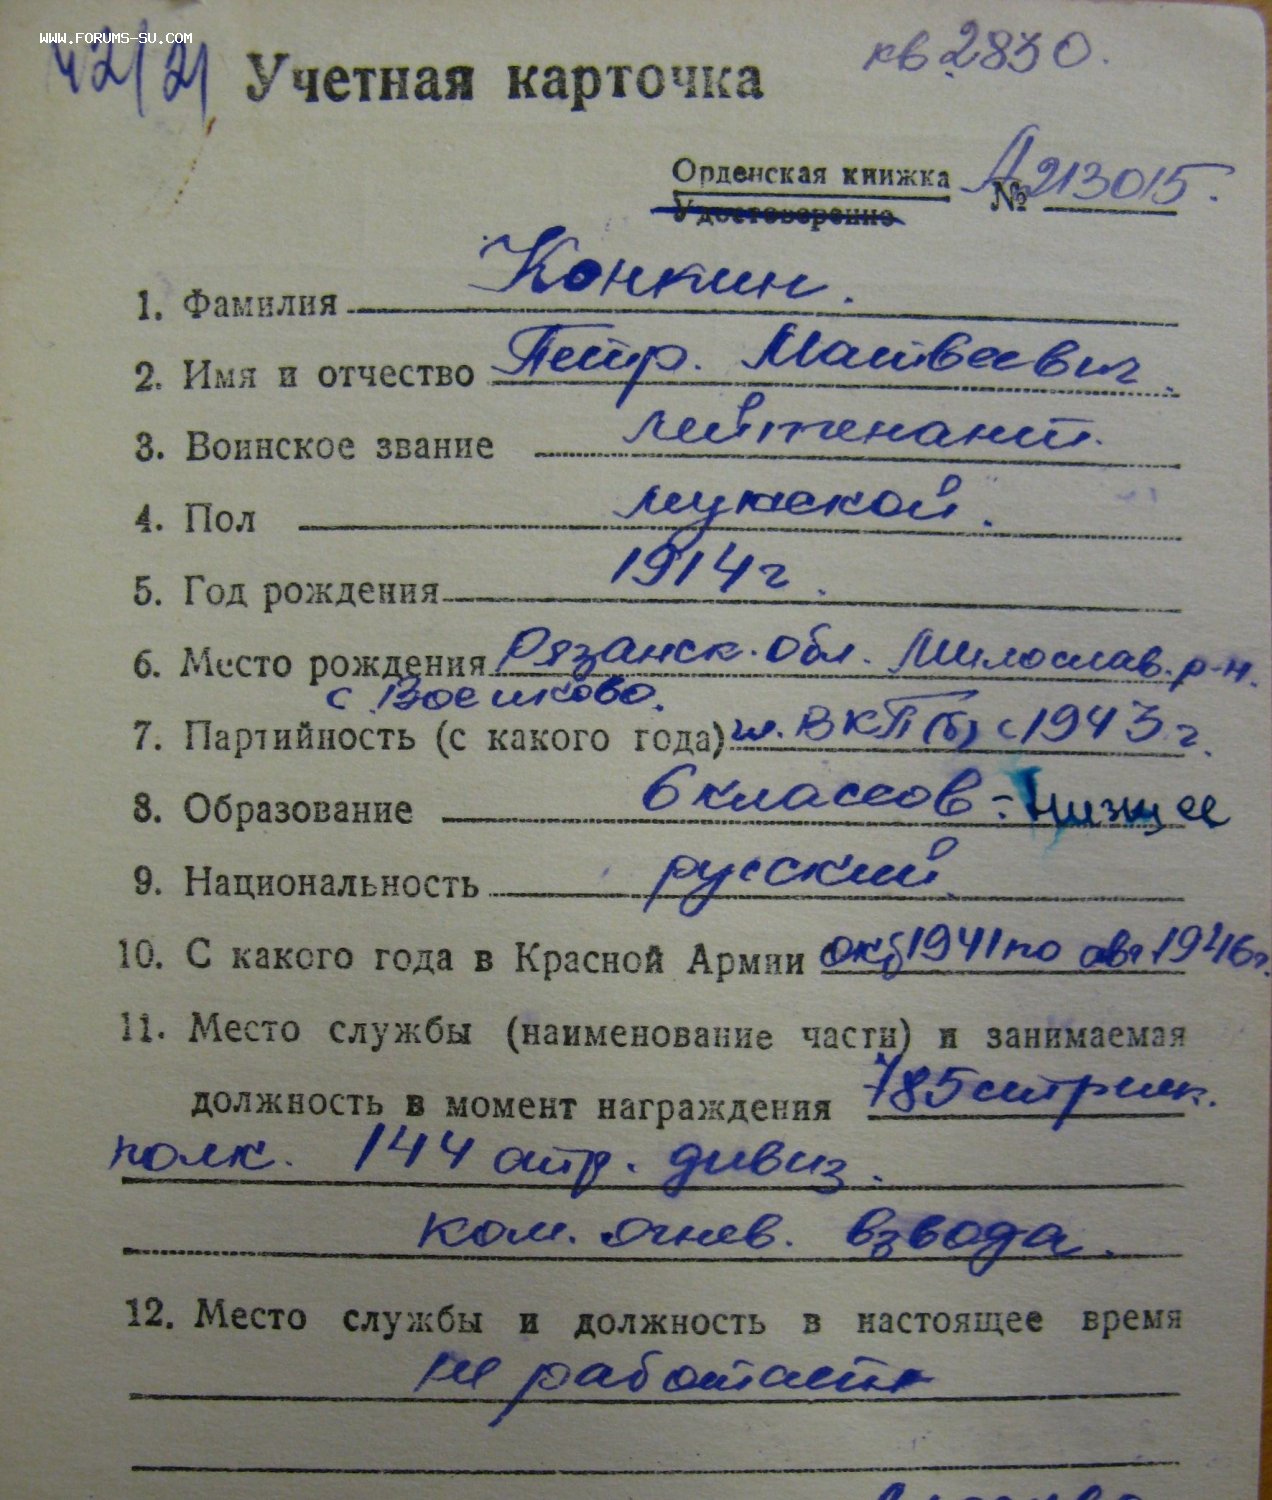 www.forums-su.com
кв 2830.
Учетная карточка
Орденская книжка
Удостоверение
№ А213015.
1. Фамилия Конкин.
2. Имя и отчество Петр. Матвеевич.
3. Воинское звание лейтенант.
4. Пол мужской.
5. Год рождения 1914 г.
6. Место рождения Рязанск. обл. Милослав. р-н.
с. Воейково.
7. Партийность (с какого года) чл. ВКП(б) с 1943 г.
8. Образование 6 классов - низшее
9. Национальность русский.
10. С какого года в Красной Армии окт 1941 по авг 1946 г.
11. Место службы (наименование части) и занимаемая
должность в момент награждения 785 стрелк.
полк. 144 стр. дивиз.
ком. огнев. взвода.
12. Место службы и должность в настоящее время
не работает